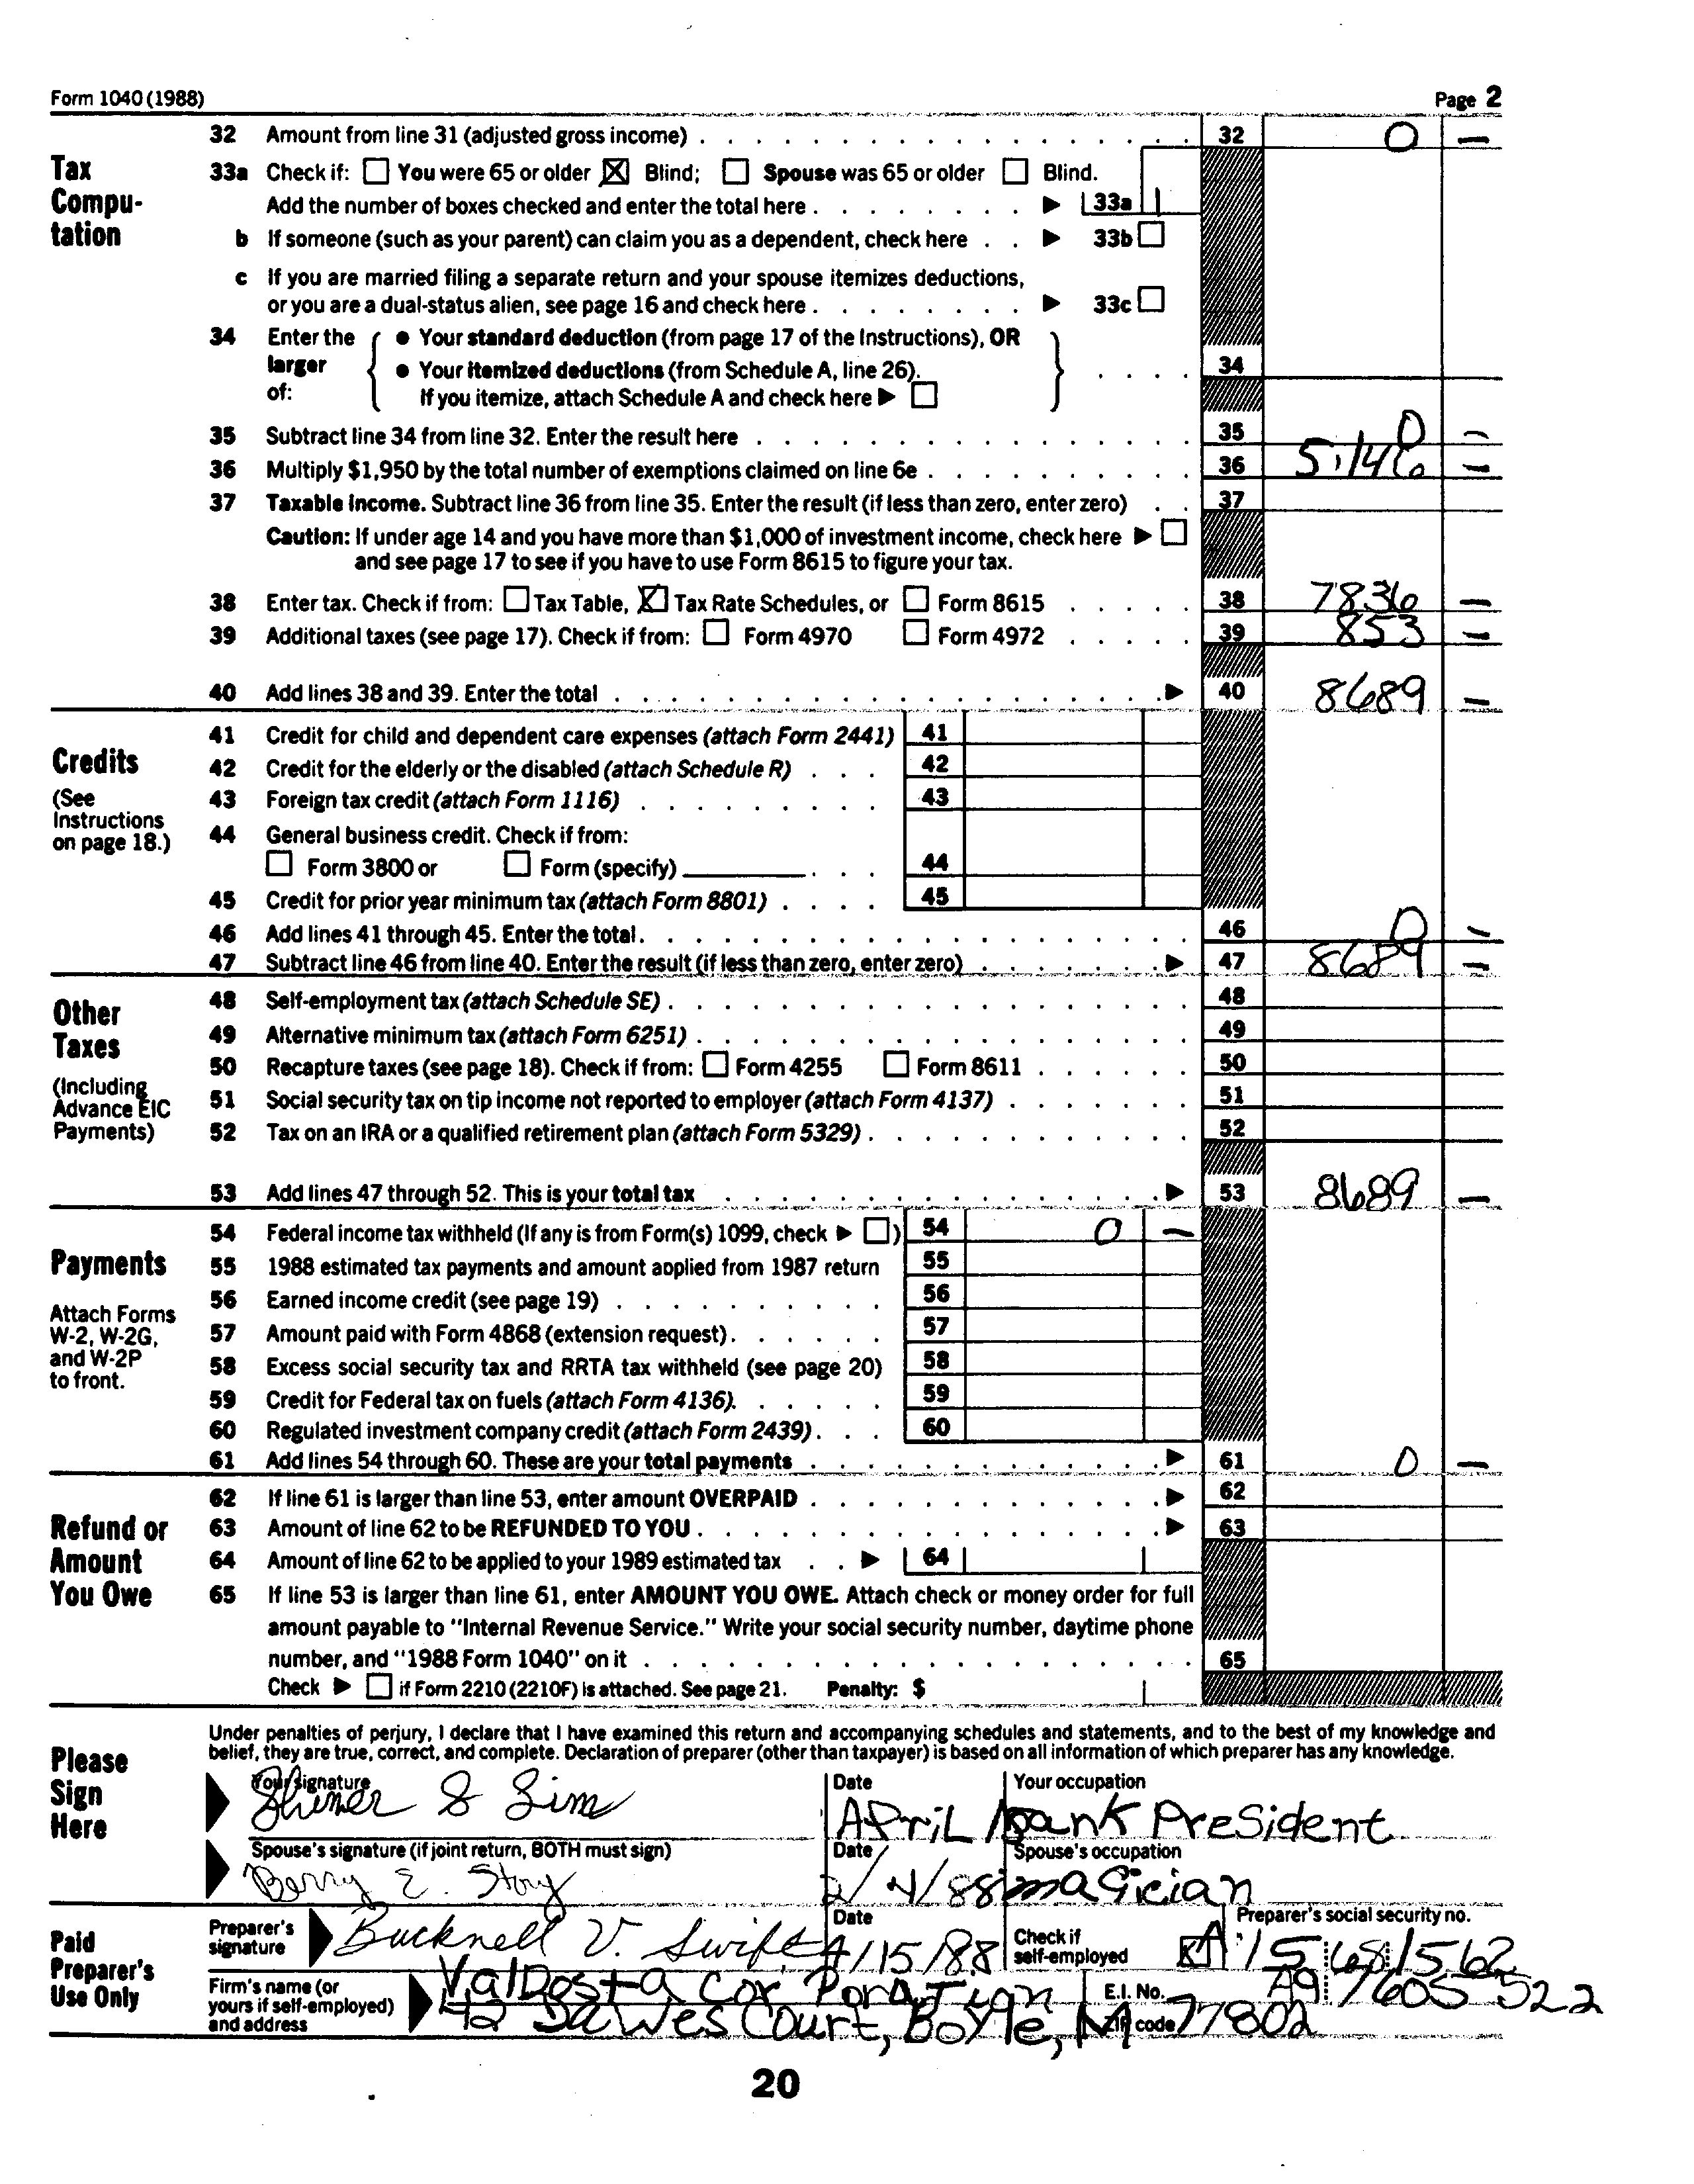 Form 1040 (1988) Page 2
Tax Computation
32 Amount from line 31 (adjusted gross income) 32 0 —
33a Check if: ☐ You were 65 or older ☒ Blind; ☐ Spouse was 65 or older ☐ Blind.
Add the number of boxes checked and enter the total here ▶ 33a 1
b If someone (such as your parent) can claim you as a dependent, check here ▶ 33b ☐
c If you are married filing a separate return and your spouse itemizes deductions,
or you are a dual-status alien, see page 16 and check here ▶ 33c ☐
34 Enter the larger of: { ● Your standard deduction (from page 17 of the Instructions), OR
● Your itemized deductions (from Schedule A, line 26). } 34
If you itemize, attach Schedule A and check here ▶ ☐
35 Subtract line 34 from line 32. Enter the result here 35 0 —
36 Multiply $1,950 by the total number of exemptions claimed on line 6e 36 5,146 —
37 Taxable income. Subtract line 36 from line 35. Enter the result (if less than zero, enter zero) 37
Caution: If under age 14 and you have more than $1,000 of investment income, check here ▶ ☐
and see page 17 to see if you have to use Form 8615 to figure your tax.
38 Enter tax. Check if from: ☐ Tax Table, ☒ Tax Rate Schedules, or ☐ Form 8615 38 7836 —
39 Additional taxes (see page 17). Check if from: ☐ Form 4970 ☐ Form 4972 39 853 —
40 Add lines 38 and 39. Enter the total ▶ 40 8689 —
Credits
(See Instructions on page 18.)
41 Credit for child and dependent care expenses (attach Form 2441) 41
42 Credit for the elderly or the disabled (attach Schedule R) 42
43 Foreign tax credit (attach Form 1116) 43
44 General business credit. Check if from:
☐ Form 3800 or ☐ Form (specify) 44
45 Credit for prior year minimum tax (attach Form 8801) 45
46 Add lines 41 through 45. Enter the total 46 0 —
47 Subtract line 46 from line 40. Enter the result (if less than zero, enter zero) ▶ 47 8689 —
Other Taxes
(Including Advance EIC Payments)
48 Self-employment tax (attach Schedule SE) 48
49 Alternative minimum tax (attach Form 6251) 49
50 Recapture taxes (see page 18). Check if from: ☐ Form 4255 ☐ Form 8611 50
51 Social security tax on tip income not reported to employer (attach Form 4137) 51
52 Tax on an IRA or a qualified retirement plan (attach Form 5329) 52
53 Add lines 47 through 52. This is your total tax ▶ 53 8689 —
Payments
Attach Forms W-2, W-2G, and W-2P to front.
54 Federal income tax withheld (If any is from Form(s) 1099, check ▶ ☐) 54 0 —
55 1988 estimated tax payments and amount applied from 1987 return 55
56 Earned income credit (see page 19) 56
57 Amount paid with Form 4868 (extension request) 57
58 Excess social security tax and RRTA tax withheld (see page 20) 58
59 Credit for Federal tax on fuels (attach Form 4136) 59
60 Regulated investment company credit (attach Form 2439) 60
61 Add lines 54 through 60. These are your total payments ▶ 61 0 —
Refund or Amount You Owe
62 If line 61 is larger than line 53, enter amount OVERPAID ▶ 62
63 Amount of line 62 to be REFUNDED TO YOU ▶ 63
64 Amount of line 62 to be applied to your 1989 estimated tax ▶ 64
65 If line 53 is larger than line 61, enter AMOUNT YOU OWE. Attach check or money order for full
amount payable to "Internal Revenue Service." Write your social security number, daytime phone
number, and "1988 Form 1040" on it 65
Check ▶ ☐ if Form 2210 (2210F) is attached. See page 21. Penalty: $
Please Sign Here
Under penalties of perjury, I declare that I have examined this return and accompanying schedules and statements, and to the best of my knowledge and
belief, they are true, correct, and complete. Declaration of preparer (other than taxpayer) is based on all information of which preparer has any knowledge.
Your signature Date Your occupation
Shimer S Sim April bank President
Spouse's signature (if joint return, BOTH must sign) Date Spouse's occupation
Berry E. Story magician
Paid Preparer's Use Only
Preparer's signature Bucknell V. Swift Date 4/15/88 Check if self-employed Preparer's social security no.
Firm's name (or yours if self-employed) and address Valdosta Corporation E.I. No.
42 Dawes Court, Boyle, MA ZIP code 77802
20